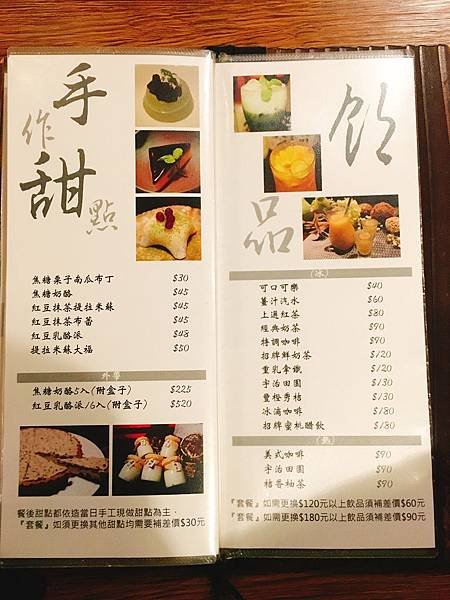 手作甜點
焦糖栗子南瓜布丁 $30
焦糖奶酪 $45
紅豆抹茶提拉米蘇 $45
紅豆抹茶布蕾 $45
紅豆乳酪派 $48
提拉米蘇大福 $50
外帶
焦糖奶酪5入(附盒子) $225
紅豆乳酪派/6入(附盒子) $520
餐後甜點都依造當日手工現做甜點為主.
『套餐』如須更換其他甜點均需要補差價$30元
飲品
(冰)
可口可樂 $40
薑汁汽水 $60
上選紅茶 $80
經典奶茶 $90
特調咖啡 $90
招牌鮮奶茶 $120
重乳拿鐵 $120
宇治田園 $130
豐橙秀桔 $130
冰滴咖啡 $180
招牌蜜桃醋飲 $180
(熱)
美式咖啡 $90
宇治田園 $90
桔香柚茶 $90
『套餐』如需更換$120元以上飲品須補差價$60元
『套餐』如需更換$180元以上飲品須補差價$90元